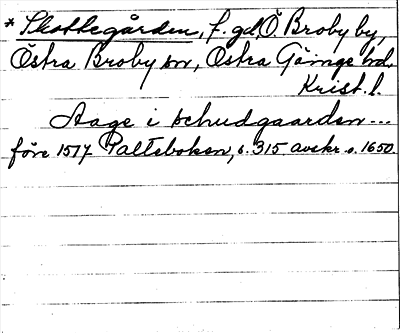 * Skottegården, f. gd, Ö Broby by,
Östra Broby sn, Östra Göinge hd.
Krist. l.
Aage i schudgaarden...
före 1517 Palteboken, s. 315 avskr. o. 1650.